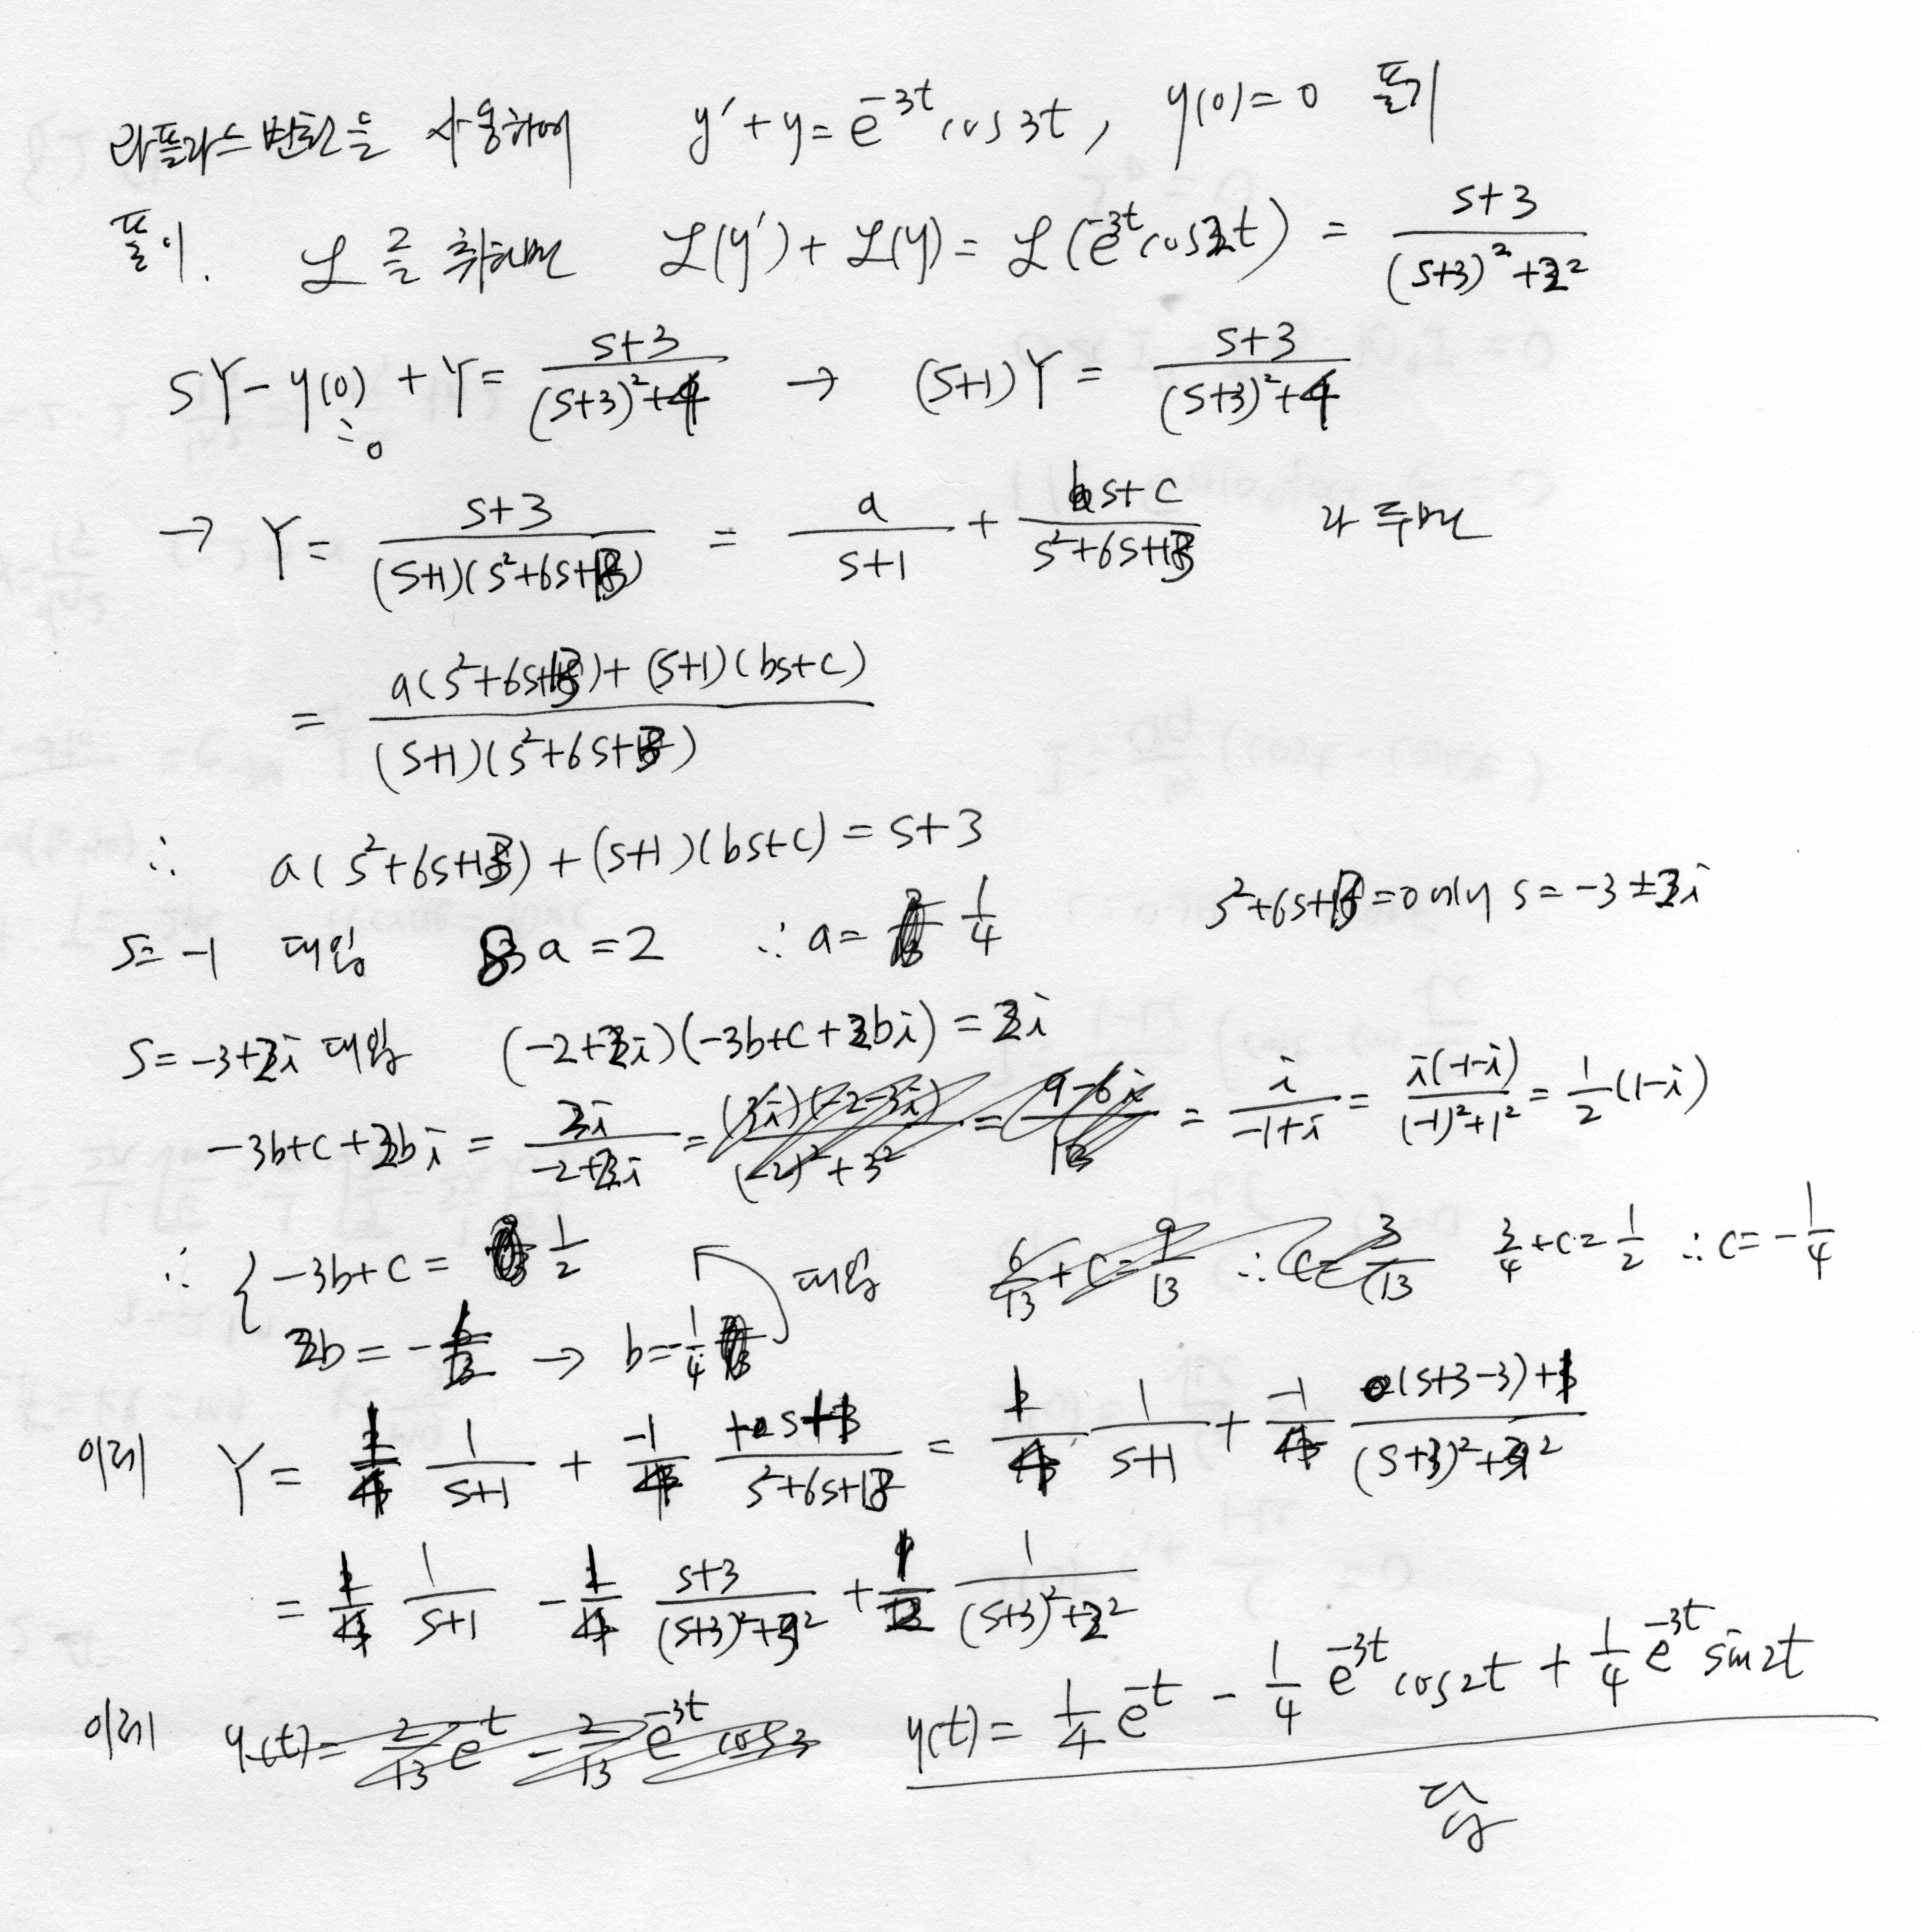 라플라스 변환을 사용하여 y′+y=e^{-3t}cos3t, y(0)=0 풀기
풀이. ℒ을 취하면 ℒ(y′)+ℒ(y)=ℒ(e^{-3t}cos2t) = (s+3)/((s+3)²+2²)
sY-y(0)+Y=(s+3)/((s+3)²+4) → (s+1)Y=(s+3)/((s+3)²+4)
=0
→ Y=(s+3)/((s+1)(s²+6s+13)) = a/(s+1) + (bs+c)/(s²+6s+13) 라 두면
= (a(s²+6s+13)+(s+1)(bs+c))/((s+1)(s²+6s+13))
∴ a(s²+6s+13)+(s+1)(bs+c)=s+3
s²+6s+13=0에서 s=-3±2i
s=-1 대입 8a=2 ∴ a=1/4
s=-3+2i 대입 (-2+2i)(-3b+c+2bi)=2i
-3b+c+2bi = 2i/(-2+2i) = (3i)(-2-3i)/((-2)²+3²) = (9-6i)/13 = i/(-1+i) = i(-1-i)/((-1)²+1²) = 1/2(1-i)
∴ { -3b+c = 1/2 대입 6/13+c=9/13 ∴ c=3/13 3/4+c=1/2 ∴ c=-1/4
2b=- → b=-1/4
이레 Y= 1/4 1/(s+1) + -1/4 (s+1)/(s²+6s+13) = 1/4 1/(s+1) + -1/4 ((s+3-3)+1)/((s+3)²+2²)
= 1/4 1/(s+1) - 1/4 (s+3)/((s+3)²+2²) + 1/2 1/((s+3)²+2²)
이레 y(t)= 2/13 e^{-t} - 2/13 e^{-3t} cos3 y(t)= 1/4 e^{-t} - 1/4 e^{-3t}cos2t + 1/4 e^{-3t}sin2t
답